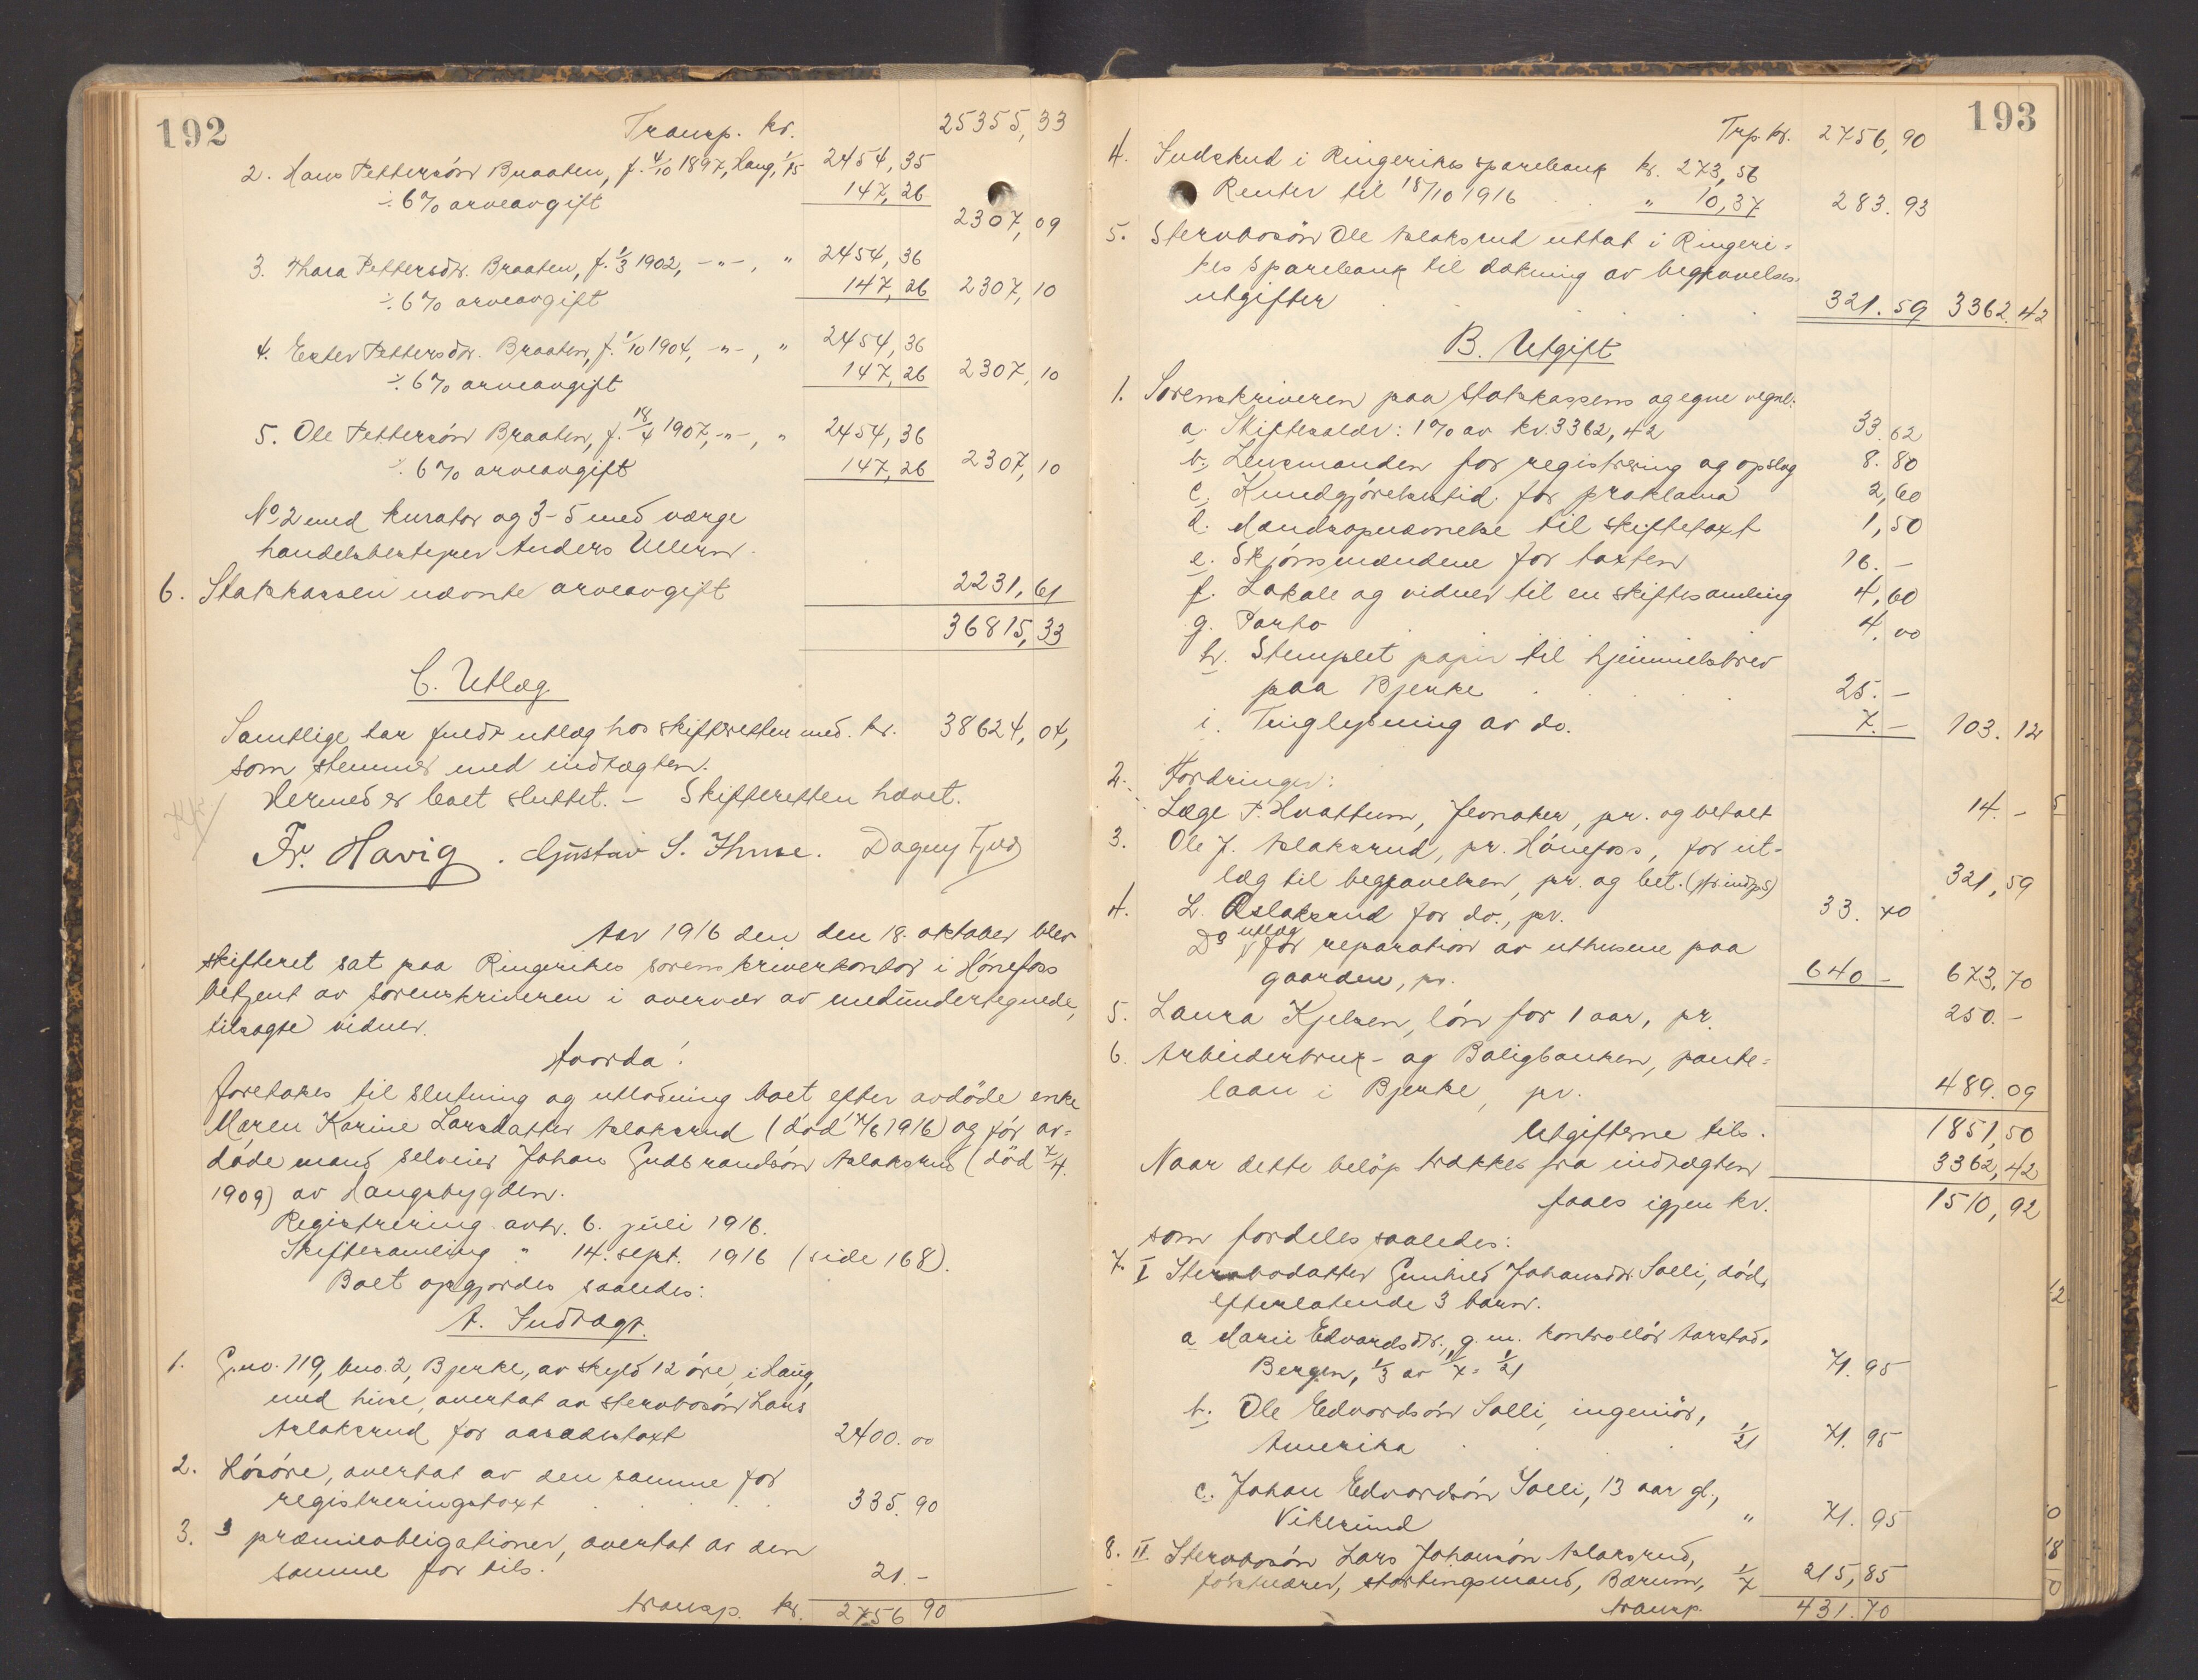 192
Transp. kr. 25355,33
2. Hans Pettersön Braaten, f. 4/10 1897, Haug, 1/15 2454,35
÷ 6% arveavgift 147,26
2307,09
3. Thara Pettersdtr. Braaten, f. 1/3 1902, -"-, " 2454,36
÷ 6% arveavgift 147,26 2307,10
4. Ester Pettersdtr. Braaten, f. 1/10 1904, -"-, " 2454,36
÷ 6% arveavgift 147,26 2307,10
5. Ole Pettersön Braaten, f. 18/4 1907, -"-, " 2454,36
÷ 6% arveavgift 147,26 2307,10
No 2 med kurator og 3-5 med værge
handelsbestyrer Anders Ullern.
6. Statskassen nævnte arveavgift 2231,61
36815,33
C. Utlæg
Samtlige har fuldt utlæg hos skifteretten med kr. 38624,04,
som stemmer med indtægten.
Hermed er boet sluttet. – Skifteretten hævet.
Fr. Havig. Gustav S. Thrne. Dagny Fjeld
Aar 1916 den den 18. oktober blev
skifteret sat paa Ringerikes sorenskriverkontor i Hönefoss
betjent av sorenskriveren i overvær av medundertegnede,
tilsagte vidner.
Hvorda!
foretakes til slutning og utlodning boet efter avdöde enke
Maren Karine Larsdatter Aslaksrud (död 7/6 1916) og för av=
döde mand selveier Johan Gudbrandsön Aslaksrud (död 7/4.
1909) av Haugsbygden.
Registrering avh. 6. juli 1916.
Skiftesamling " 14. sept. 1916 (side 168).
Boet opgjordes saaledes:
A. Indtægt.
1. G.no. 119, bno. 2, Bjerke, av skyld 12 öre, i Haug,
med huse, overtat av stervbosön Lars
Aslaksrud for aasædestaxt 2400.00
2. Lösöre, overtat av den samme for
registreringstaxt 335.90
3. 3 præmieobligationer, overtat av den
samme for tils. 21.-
transp. kr. 2756 90
193
Trp. kr. 2756,90
4. Indskud i Ringerikes sparebank kr. 273,56
Renter til 18/10 1916 " 10,37 283.93
5. Stervbosön Ole Aslaksrud uttat i Ringeri=
kes sparebank til dækning av begravelses=
utgifter 321.59 3362.42
B. Utgift
1. Sorenskriveren paa Statskassens og egne vegne:
a. Skiftesalær: 1% av kr. 3362,42 33.62
b. Lensmanden for registrering og opslag 8.80
c. Kundgjörelsestid. for proklama 2,60
d. Mandsopnævnelse til skiftetaxt 1,50
e. Skjönsmændene for taxten 16.-
f. Lokale og vidner til en skiftesamling 4,60
g. Porto 4.00
h. Stemplet papir til hjemmelsbrev
paa Bjerke 25.-
i. Tinglysning av do. 7.- 103.12
2. Fordringer:
Læge P. Hvattum, Jevnaker, pr. og betalt 14.-
3. Ole J. Aslaksrud, pr. Hönefoss, for ut-
læg til begravelsen, pr. og bet. (ftr. indp 5) 321,59
4. L. Aslaksrud for do., pr. 33.70
Do utlæg for reparation av uthusene paa
gaarden, pr. 640 - 673,70
5. Laura Kjelsen, lön for 1 aar, pr. 250.-
6. Arbeiderbruk- og Boligbanken, pante=
laan i Bjerke, pr. 489.09
Utgifterne tils. 1851,50
Naar dette belöp trækkes fra indtægten 3362,42
faaes igjen kr. 1510,92
som fordeles saaledes:
7. I Stervbodatter Gunhild Johansdtr. Solli, död,
efterlatende 3 barn.
a Marie Edvardsdtr., g.m. kontrollör Aarstad,
Bergen, 1/3 av 1/7 = 1/21 71.95
b. Ole Edvardsön Solli, ingeniör,
Amerika 1/21 71.95
c. Johan Edvardsön Solli, 13 aar gl.,
Vikersund " 71.95
8. II Stervbosön Lars Johansön Aslaksrud,
stortingsmand, Bærum, 1/7 215,85
transp. 431.70